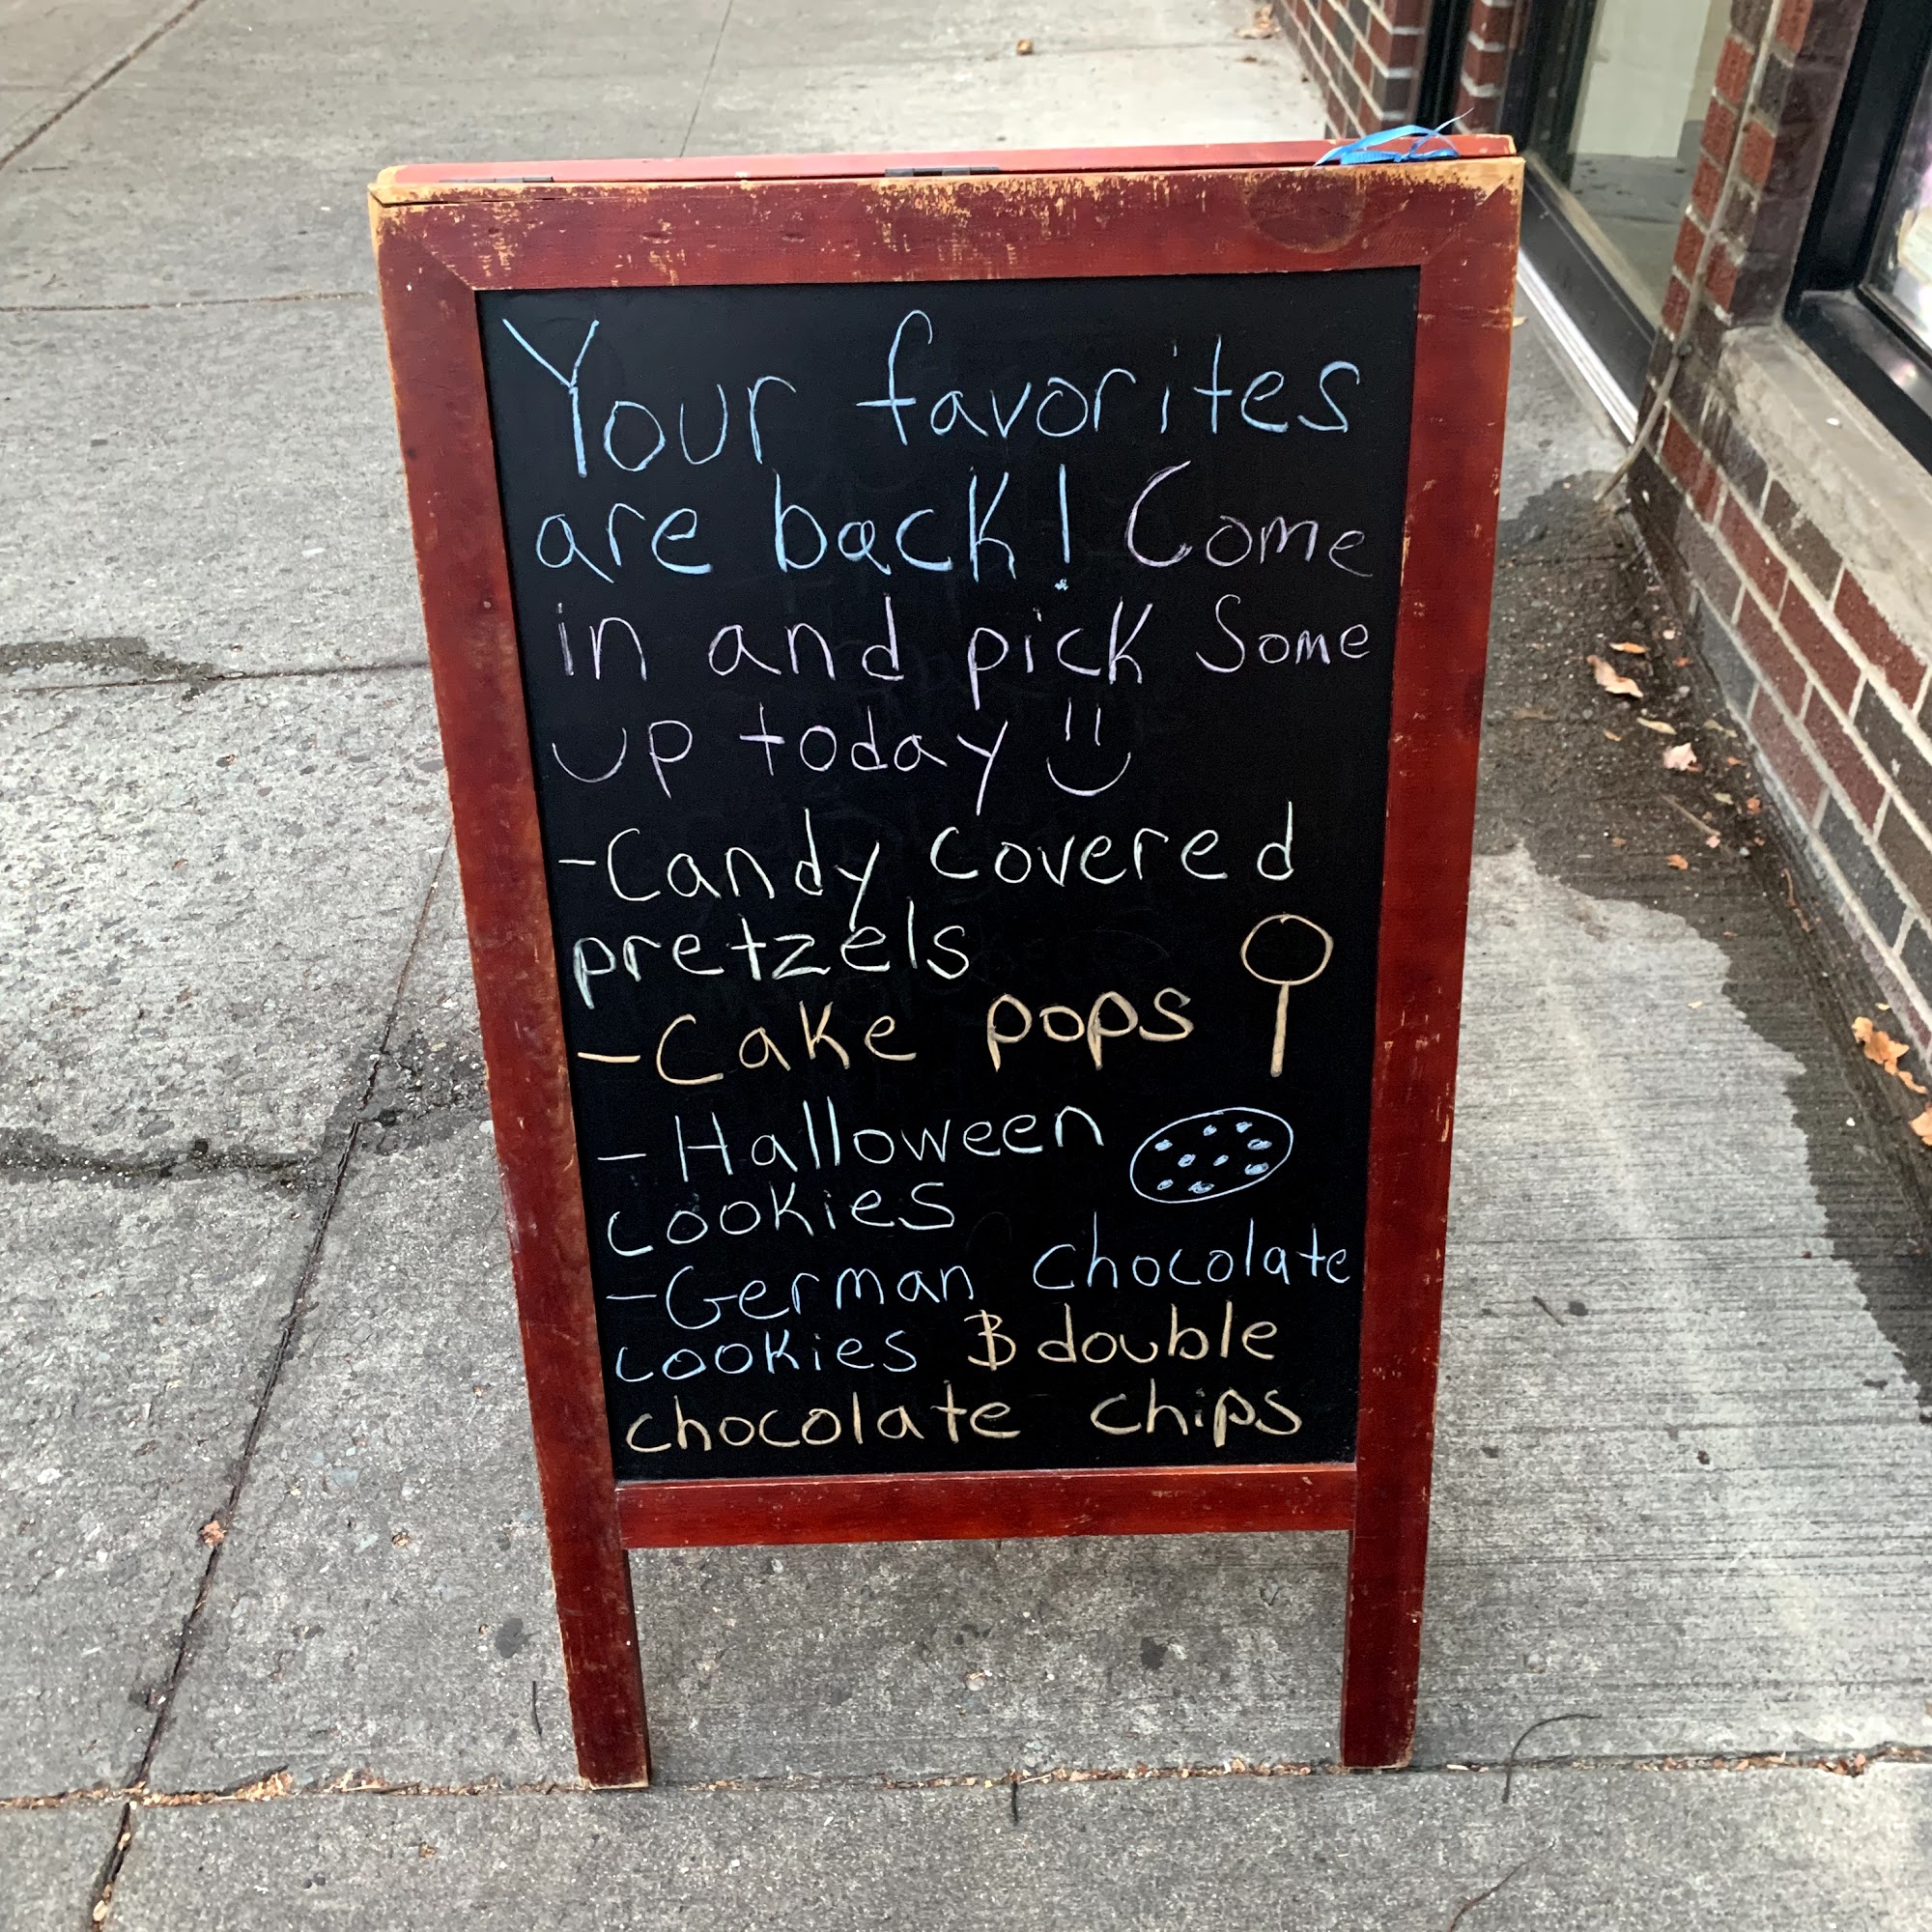 Your favorites
are back! Come
in and pick Some
up today
-Candy covered
pretzels
-Cake pops
-Halloween
cookies
-German chocolate
cookies & double
chocolate chips